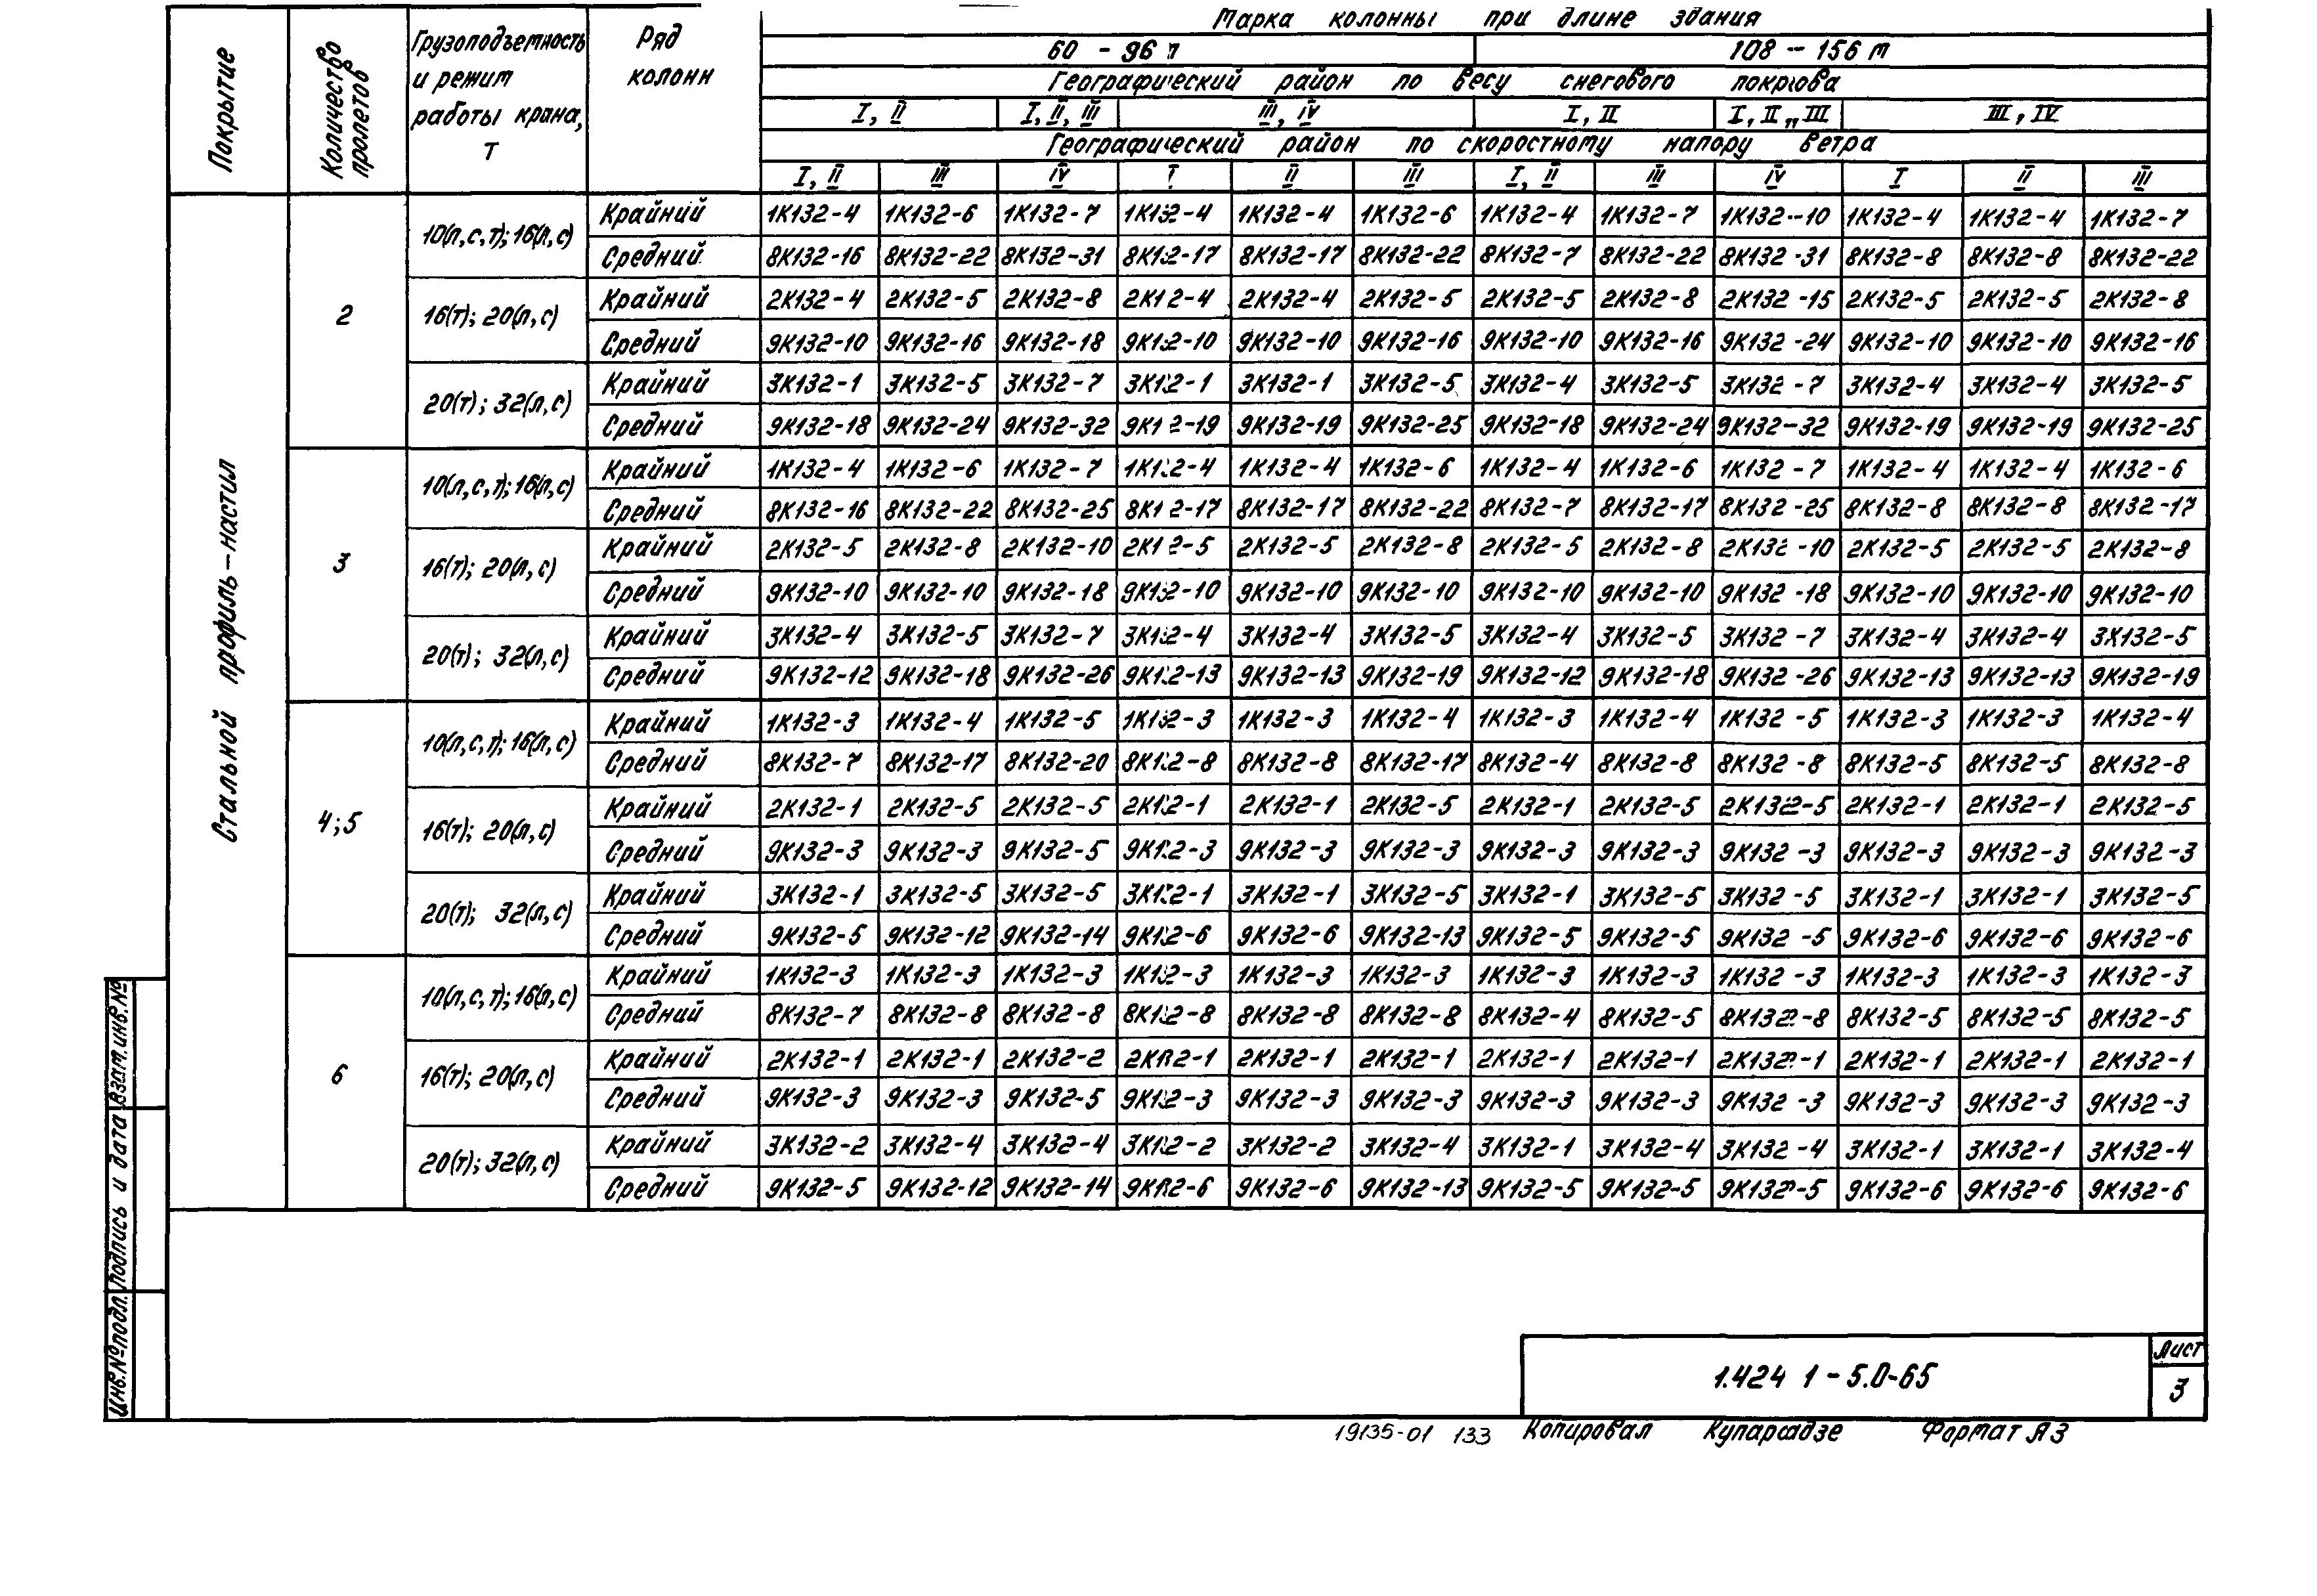 Марка колонны при длине здания
Покрытие Количество пролетов Грузоподъемность и режим работы крана, т Ряд колонн
60 - 96 м 108 - 156 м
Географический район по весу снегового покрова
I, II I, II, III III, IV I, II I, II, III III, IV
Географический район по скоростному напору ветра
I, II III IV I II III I, II III IV I II III
Стальной профиль-настил
2
10(л,с,т); 16(л,с)
Крайний 1К132-4 1К132-6 1К132-7 1К132-4 1К132-4 1К132-6 1К132-4 1К132-7 1К132-10 1К132-4 1К132-4 1К132-7
Средний 8К132-16 8К132-22 8К132-31 8К132-17 8К132-17 8К132-22 8К132-7 8К132-22 8К132-31 8К132-8 8К132-8 8К132-22
16(т); 20(л,с)
Крайний 2К132-4 2К132-5 2К132-8 2К132-4 2К132-4 2К132-5 2К132-5 2К132-8 2К132-15 2К132-5 2К132-5 2К132-8
Средний 9К132-10 9К132-16 9К132-18 9К132-10 9К132-10 9К132-16 9К132-10 9К132-16 9К132-24 9К132-10 9К132-10 9К132-16
20(т); 32(л,с)
Крайний 3К132-1 3К132-5 3К132-7 3К132-1 3К132-1 3К132-5 3К132-4 3К132-5 3К132-7 3К132-4 3К132-4 3К132-5
Средний 9К132-18 9К132-24 9К132-32 9К132-19 9К132-19 9К132-25 9К132-18 9К132-24 9К132-32 9К132-19 9К132-19 9К132-25
3
10(л,с,т); 16(л,с)
Крайний 1К132-4 1К132-6 1К132-7 1К132-4 1К132-4 1К132-6 1К132-4 1К132-6 1К132-7 1К132-4 1К132-4 1К132-6
Средний 8К132-16 8К132-22 8К132-25 8К132-17 8К132-17 8К132-22 8К132-7 8К132-17 8К132-25 8К132-8 8К132-8 8К132-17
16(т); 20(л,с)
Крайний 2К132-5 2К132-8 2К132-10 2К132-5 2К132-5 2К132-8 2К132-5 2К132-8 2К132-10 2К132-5 2К132-5 2К132-8
Средний 9К132-10 9К132-10 9К132-18 9К132-10 9К132-10 9К132-10 9К132-10 9К132-10 9К132-18 9К132-10 9К132-10 9К132-10
20(т); 32(л,с)
Крайний 3К132-4 3К132-5 3К132-7 3К132-4 3К132-4 3К132-5 3К132-4 3К132-5 3К132-7 3К132-4 3К132-4 3К132-5
Средний 9К132-12 9К132-18 9К132-26 9К132-13 9К132-13 9К132-19 9К132-12 9К132-18 9К132-26 9К132-13 9К132-13 9К132-19
4;5
10(л,с,т); 16(л,с)
Крайний 1К132-3 1К132-4 1К132-5 1К132-3 1К132-3 1К132-4 1К132-3 1К132-4 1К132-5 1К132-3 1К132-3 1К132-4
Средний 8К132-7 8К132-17 8К132-20 8К132-8 8К132-8 8К132-17 8К132-4 8К132-8 8К132-8 8К132-5 8К132-5 8К132-8
16(т); 20(л,с)
Крайний 2К132-1 2К132-5 2К132-5 2К132-1 2К132-1 2К132-5 2К132-1 2К132-5 2К132-5 2К132-1 2К132-1 2К132-5
Средний 9К132-3 9К132-3 9К132-5 9К132-3 9К132-3 9К132-3 9К132-3 9К132-3 9К132-3 9К132-3 9К132-3 9К132-3
20(т); 32(л,с)
Крайний 3К132-1 3К132-5 3К132-5 3К132-1 3К132-1 3К132-5 3К132-1 3К132-5 3К132-5 3К132-1 3К132-1 3К132-5
Средний 9К132-5 9К132-12 9К132-14 9К132-6 9К132-6 9К132-13 9К132-5 9К132-5 9К132-5 9К132-6 9К132-6 9К132-6
6
10(л,с,т); 16(л,с)
Крайний 1К132-3 1К132-3 1К132-3 1К132-3 1К132-3 1К132-3 1К132-3 1К132-3 1К132-3 1К132-3 1К132-3 1К132-3
Средний 8К132-7 8К132-8 8К132-8 8К132-8 8К132-8 8К132-8 8К132-4 8К132-5 8К132-8 8К132-5 8К132-5 8К132-5
16(т); 20(л,с)
Крайний 2К132-1 2К132-1 2К132-2 2К132-1 2К132-1 2К132-1 2К132-1 2К132-1 2К132-1 2К132-1 2К132-1 2К132-1
Средний 9К132-3 9К132-3 9К132-5 9К132-3 9К132-3 9К132-3 9К132-3 9К132-3 9К132-3 9К132-3 9К132-3 9К132-3
20(т); 32(л,с)
Крайний 3К132-2 3К132-4 3К132-4 3К132-2 3К132-2 3К132-4 3К132-1 3К132-4 3К132-4 3К132-1 3К132-1 3К132-4
Средний 9К132-5 9К132-12 9К132-14 9К132-6 9К132-6 9К132-13 9К132-5 9К132-5 9К132-5 9К132-6 9К132-6 9К132-6
Инв.№подл. Подпись и дата Взам.инв.№
1.424 1-5.0-65
Лист
3
19135-01 133 Копировал Купарадзе Формат А3